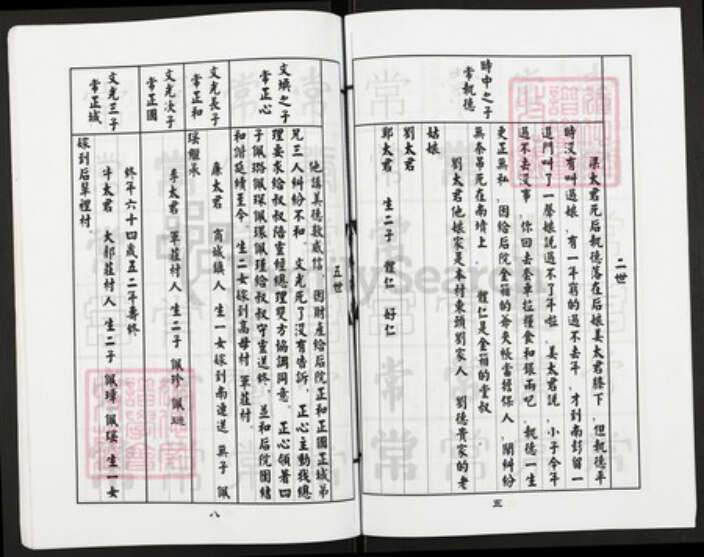 二世
梁太君死后親德落在后娘姜太君膝下，但親德年
時没有叫过娘，有一年窮的過不去年，才到南彭留一
道門叫了一聲娘説過不了年啦，姜太君説，小子今年
過不去没事，你回去套車拉糧食和銀兩吧，親德一生
更正無私，因給后院金箱的爺失帳當擔保人，閙糾紛
無奈吊死在南墳上，體仁是金箱的堂叔
劉太君他娘家是本村東頭劉家人，劉德貴家的老
姑娘
時中之子
常親德
劉太君
鄭太君 生二子 體仁 好仁
五
五世
他講美德敦威信，因財産給后院正和正國正城弟
兄三人糾紛不和，文光死了没有告訴，正心主動找總
理要求給叔叔陪靈經總理雙方協調同意，正心領着四
子佩璐佩琛佩環佩瑾給叔叔守靈送終，并和后院團結
和諧延續至今 生二女嫁到高母村 軍莊村。
文煥之子
常正心
文光長子
常正和
康太君 商城鎮人 生一女嫁到南連送 無子 佩
瑤繼承
文光次子
常正國
李太君 軍莊村人 生二子 佩珍 佩珽
終年六十四歲五二年壽終
文光三子
常正城
牛太君 大郝莊村人 生二子 佩璋 佩瑤 生一女
嫁到后草裡村。
八